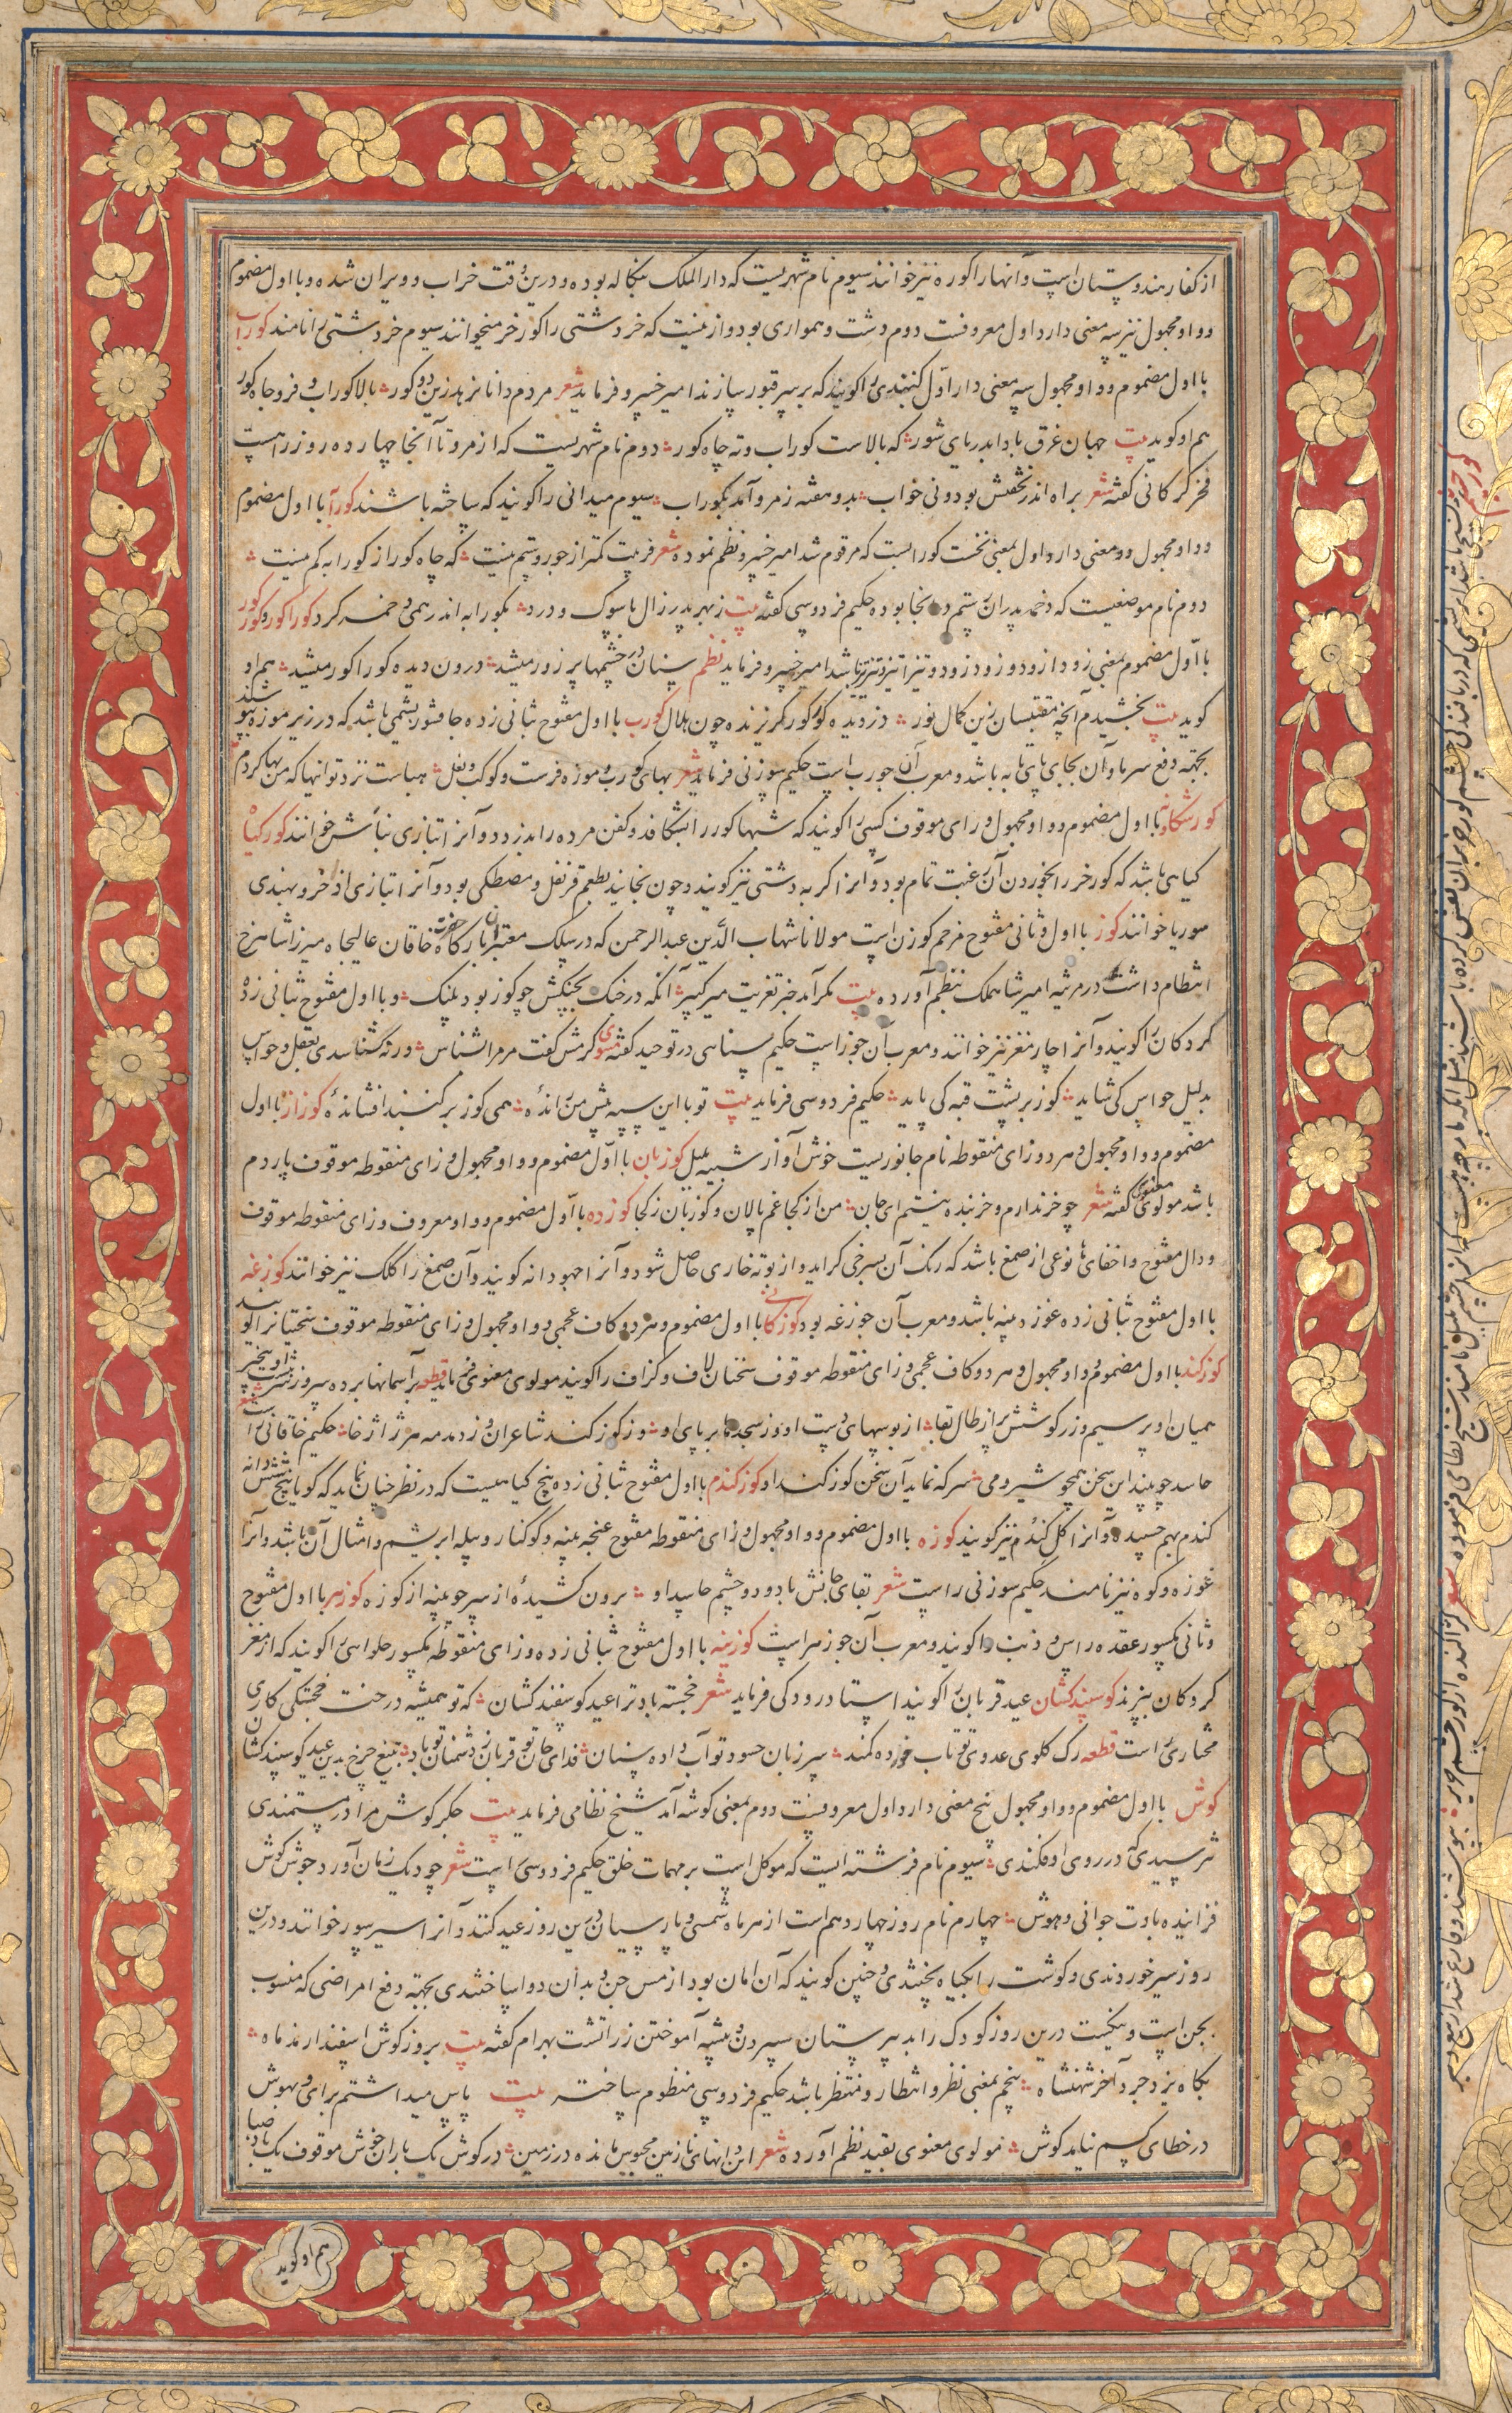 از کفار هندوستان است و آنها را کوره نیز خوانند سیوم نام شهریست که دارالملک بنکاله بوده و درین وقت خراب و ویران شده و با اول مضموم
و واو مجهول نیز سه معنی دارد اول معروفست دوم دشت و همواری بود و ازینست که خر دشتی را کورخر میخوانند سیوم خر دشتی را نامند کوراب
با اول مضموم و واو مجهول سه معنی دارد اول کنبدی را کویند که بر سر قبور سازند امیر خسرو فرماید شعر مردم دانا نرهد زین دو کور بالا کوراب و فرو چاه کور
هم او کوید بیت جهان غرق باد ابدریای شور که بالاست کوراب و ته چاه کور دوم نام شهریست که از مرو تا آنجا چهارده روز راهست
فخر کرکانی کفته شعر براه اندر نخفتش بود و نی خواب بدو هفته ز مرو آمد بکوراب سیوم میدانی را کویند که ساخته باشند کورابه با اول مضموم
و واو مجهول دو معنی دارد اول بمعنی نخست کورابست که مرقوم شد امیر خسرو نظم نموده شعر فریب کمتر از جور و ستم نیست که چاه کور از کورابه کم نیست
دوم نام موضعیست که دخمه پدران رستم در آنجا بوده حکیم فردوسی کفته بیت ز بهر پدر زال با سوک و درد بکورابه اندر همی دخمه کرد کوراکور و کورکور
با اول مضموم بمعنی زود ازود و زود زود و تیزاتیز و تیزتیز باشد امیر خسرو فرماید نظم سنان در چشمها پر زور میشد درون دیده کوراکور میشد هم او
کوید بیت بخشیدم آنچه مقتبسان زین کمال نور دزدیده کورکور کریزنده چون هلال کورب با اول مفتوح بثانی زده جاقشور پشمی باشد که در زیر موزه پوشند
بجهة دفع سرما و آن بجای پاتابه باشد و معرب آن جورب است حکیم سوزنی فرماید شعر بهای کورب و موزه فرست و کوکب و نعل بهاست نزد تو اینها که من بها کردم
کورشکاف با اول مضموم و واو مجهول و رای موقوف کسی را کویند که شبها کور را بشکافد و کفن مرده را بدزدد و آنرا بتازی نباش خوانند کورکیاه
کیاهی باشد که کورخر را بخوردن آن رغبت تمام بود و آنرا کربه دشتی نیز کویند و چون بخایند بطعم قرنفل و مصطکی بود و آنرا بتازی اذخر و بهندی
سوریا خوانند کوز با اول و ثانی مفتوح مرخم کوزن است مولانا شهاب الدین عبدالرحمن که در سلک معتبران بارکاه حضرت خاقان عالیجاه میرزا شاهرخ
انتظام داشت در مرثیه امیر شاه ملک نظم آورده بیت مکر آمد خبر تعزیت میر کبیر آنکه در جنک بجنکش چو کوز بود پلنک و با اول مفتوح بثانی زده
کردکان را کویند و آنرا چارمغز نیز خوانند و معرب آن جوز است حکیم سنایی در توحید کفته مثنوی کرمش کفت مر مرا بشناس ورنه که شناسدی بعقل و حواس
بدلیل حواس کی شاید کوز بر پشت قبه کی پاید حکیم فردوسی فرماید بیت تو با این سپه پیش من رانده همی کوز بر کنبد افشانده کوزاز با اول
مضموم و واو مجهول و هر دو زای منقوطه نام جانوریست خوش آواز شبیه ببلبل کوزبان با اول مضموم و واو مجهول و زای منقوطه موقوف پاردم
باشد مولوی معنوی کفته شعر چو خر ندارم و خربنده نیستم ای جان من از کجا غم پالان و کوزبان ز کجا کوزده با اول مضموم و واو معروف و زای منقوطه موقوف
و دال مفتوح و اخفای ها نوعی از صمغ باشد که رنک آن بسرخی کراید و از بوته خاری حاصل شود و آنرا جهودانه کویند و آن صمغ را کلک نیز خوانند کوزغه
با اول مفتوح بثانی زده غوزه پنبه باشد و معرب آن جوزغه بود کوزکانی با اول مضموم و هر دو کاف عجمی و واو مجهول و زای منقوطه موقوف سختیانرا کویند
کوزکند با اول مضموم و واو مجهول و هر دو کاف عجمی و زای منقوطه موقوف سخنان لاف و کزاف را کویند مولوی معنوی فرماید قطعه بر آسمانها برده سر وز سرنبشت او بیخبر
همیان او پر سیم و زر کوشش پر از طال بقا از بوسهای دست او وز سجدها بر پای او وز کوزکند شاعران وز دمدمه هر ژاژخا حکیم خاقانی راست شعر
حاسد چو بیند این سخن همچو شیر و می سرکه نماید آن سخن کوزکند او کوزکندم با اول مفتوح بثانی زده بیخ کیاهیست که در نظر چنان نماید که کویا پنج شش دانه
کندم بهم چسپیده و آنرا کل کندم نیز کویند کوزه با اول مضموم و واو مجهول و زای منقوطه مفتوح غنچه پنبه و کوکنار و پیله ابریشم و امثال آن باشد و آنرا
غوزه و کوه نیز نامند حکیم سوزنی راست شعر بقای جانش باد و دو چشم حاسد او برون کشیده از سر چو پنبه از کوزه کوزهر با اول مفتوح
و ثانی مکسور عقده راس و ذنب را کویند و معرب آن جوزهر است کوزینه با اول مفتوح بثانی زده و زای منقوطه مکسور حلوایی را کویند که از مغز
کردکان بپزند کوسپندکشان عید قربان را کویند استاد رودکی فرماید شعر خجسته باد ترا عید کوسفندکشان که تو همیشه درخت خجستکی کاری
مختاری راست قطعه رک کلوی عدوی تو تاب خورده کمند سر زبان حسود تو آب داده سنان فدای جان تو قربان ز دشمنان تو باد بتیغ چرخ بدین عید کوسپندکشان
کوش با اول مضموم و واو مجهول پنج معنی دارد اول معروفست دوم بمعنی کوشه آمد شیخ نظامی فرماید بیت جکرکوش مرا در مستمندی
نترسیدی که در روی اوفکندی سیوم نام فرشته ایست که موکل است بر مهمات خلق حکیم فردوسی راست شعر چو دیک زمان آورد جوش کوش
فزاینده بادت جوانی و هوش چهارم نام روز چهاردهم است از هر ماه شمسی و پارسیان درین روز عید کنند و آنرا سیرسور خوانند و درین
روز سیر خوردندی و کوشت را بکیاه پختندی و چنین کویند که آن امان بود از مس جن و بدان دوا ساختندی بجهة دفع امراضی که منسوب
بجن است و نیکست درین روز کودک را بدبیرستان سپردن و پیشه آموختن زراتشت بهرام کفته بیت بروز کوش اسفندارمذ ماه
بکاه یزدجرد آخر شهنشاه پنجم بمعنی نظر و انتظار و منتظر باشد حکیم فردوسی منظوم ساخته بیت پاس میداشتم برای و بهوش
در خطای کسم نیامد کوش مولوی معنوی بقید نظم آورده شعر این دانهای نازنین محبوس مانده در زمین در کوش یک باران خوش موقوف یک باد صبا
هم او کوید